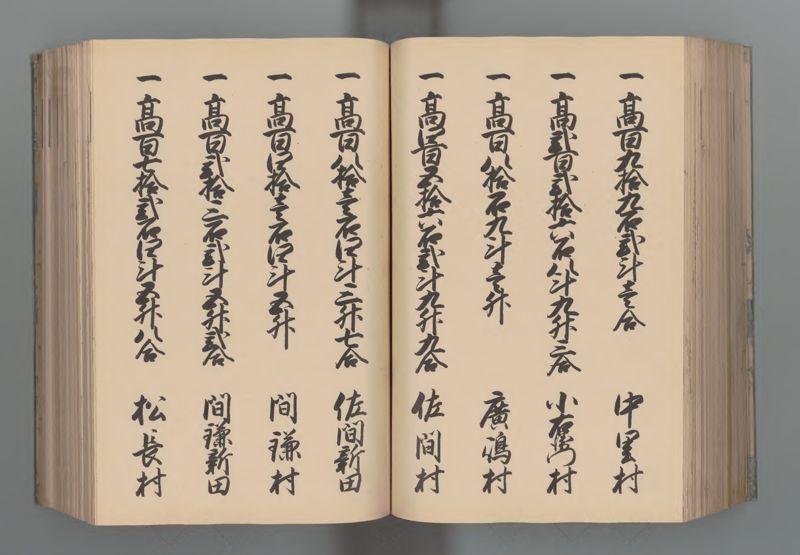 一高百九拾九石弐斗壱合 中里村
一高弐百弐拾六石八斗九升三合 小右衛門村
一高百八拾石九斗壱升 廣嶋村
一高四百五拾六石弐斗九升九合 佐間村
一高百八拾壱石四斗三升七合 佐間新田
一高百四拾壱石四斗五升 間鎌村
一高百弐拾三石弐斗五升弐合 間鎌新田
一高百七拾弐石四斗五升八合 松長村